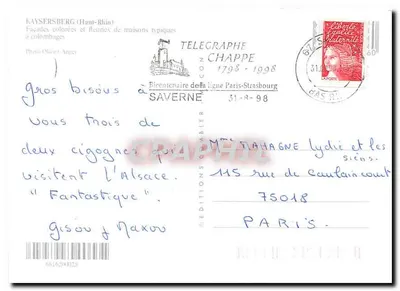 KAYSERSBERG (Haut-Rhin)
Façades colorées et fleuries de maisons typiques
à colombages
TELEGRAPHE
CHAPPE
1798 - 1998
Bicentenaire de la ligne Paris-Strasbourg
SAVERNE 31-8-98
gros bisous à
vous trois de
deux cigognes qui
visitent l'Alsace.
"Fantastique".
Gisou & Maxou
Mme MAHAGNE Lydie et les
siens.
115 rue de Caulaincourt
75018
PARIS.